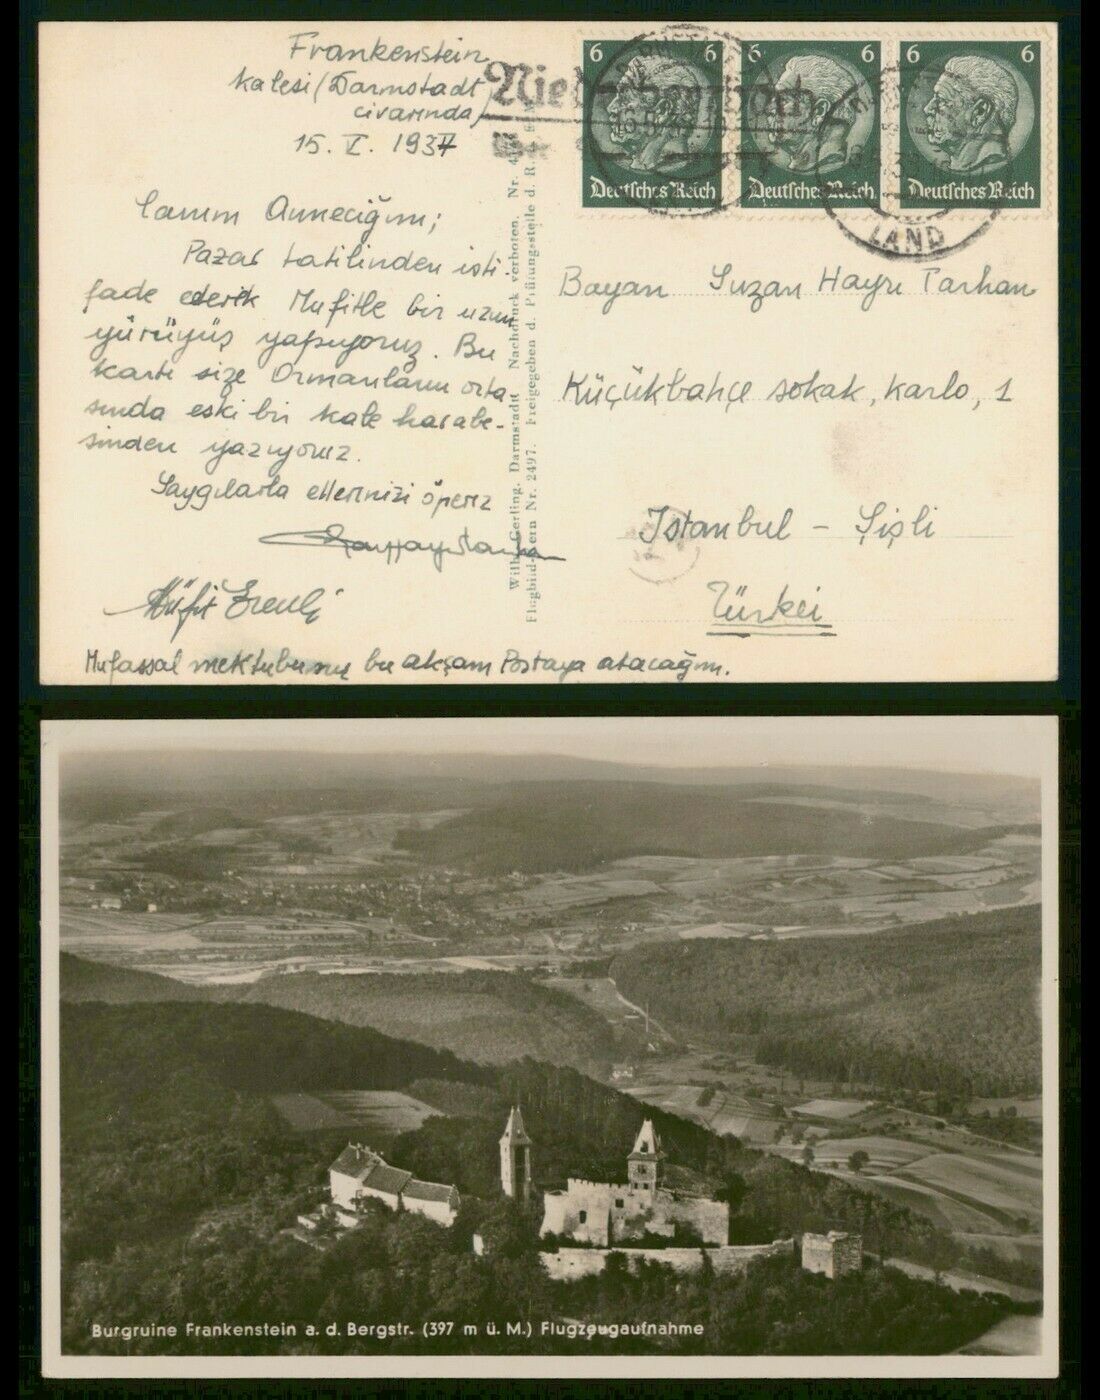 Frankenstein
Kalesi (Darmstadt
civarında)
15. V. 1937
Canım Anneciğim;
Pazar tatilinden isti-
fade ederek Müfitle bir uzun
yürüyüş yapıyoruz. Bu
kartı size Ormanların orta
sında eski bir kale harabe-
sinden yazıyoruz.
Saygılarla ellerinizi öperiz
Müfit
Mufassal mektubumu bu akşam Postaya atacağım.
Wilh. Gerling, Darmstadt Nachdruck verboten. Nr.
Flugbild-ern Nr. 2497. Freigegeben d. Prüfungsstelle d. R.
6 6 6 6 6 6
Deutsches Reich Deutsches Reich Deutsches Reich
LAND
Bayan Suzan Hayri Tarhan
Küçükbahçe sokak, Karlo, 1
Istanbul - Şişli
Türkei
Burgruine Frankenstein a. d. Bergstr. (397 m ü. M.) Flugzeugaufnahme